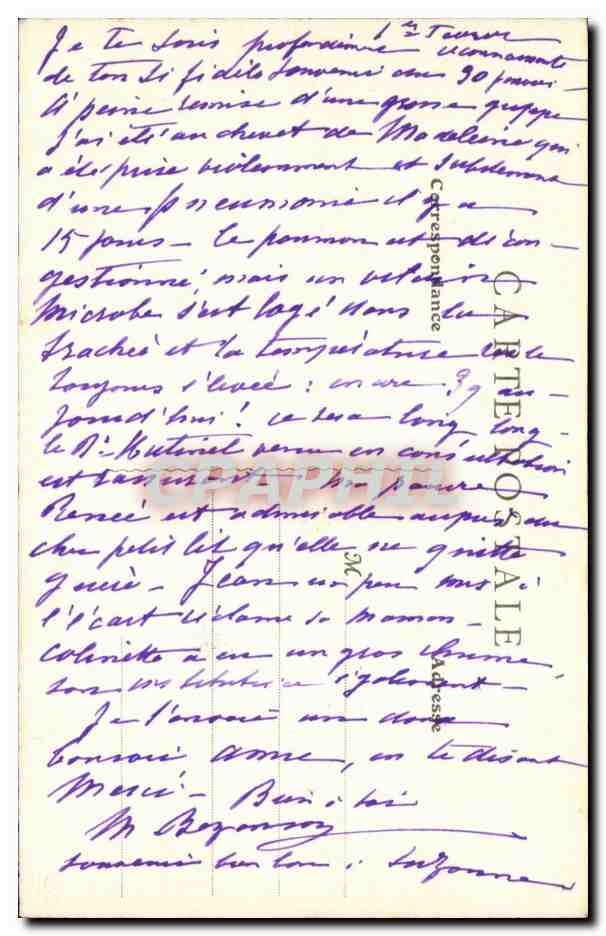 1er Février
Je te suis profondément reconnaissante
de ton si fidèle souvenir du 30 janvier
à peine remise d'une grosse grippe
j'ai été au chevet de Madeleine qui
a été prise violemment et subitement
d'une pneumonie il y a
15 jours - le poumon est décon-
gestionné, mais un vilain
microbe s'est logé dans la
trachée et la température
toujours élevée : encore 39 au-
jourd'hui ! ce sera long, long -
le Dr Hutinel venu en consultation
est rassurant - ma pauvre
Renée est admirable auprès du
cher petit lit qu'elle ne quitte
guère - Jean un peu mis à
l'écart réclame sa maman -
Colinette a eu un gros rhume,
son institutrice également -
Je t'envoie un doux
bonsoir amie, en te disant
merci - Bien à toi
M Bezançon
souvenir à Suzanne
CARTE POSTALE
Correspondance
M
Adresse
CPAPHIL